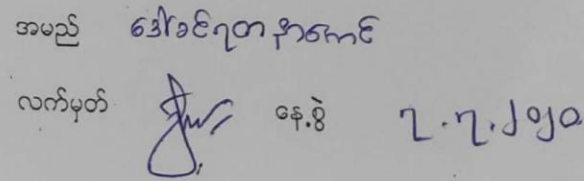 အမည် ဒေါ်ခင်ရတနာကောင်
လက်မှတ် နေ့စွဲ ၇.၇.၂၀၂၀